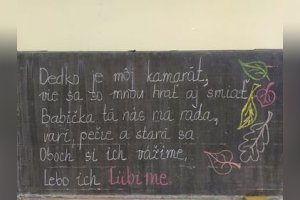 Dedko je môj kamarát,
vie sa so mnou hrať aj smiať.
Babička tá nás má rada,
varí, pečie a stará sa.
Oboch si ich vážime,
Lebo ich ľúbime.